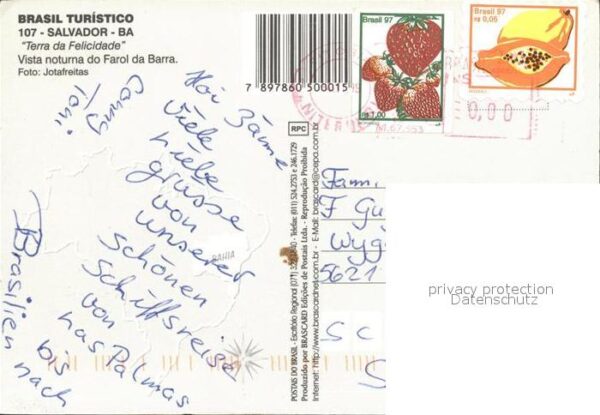 BRASIL TURÍSTICO
107 - SALVADOR - BA
"Terra da Felicidade"
Vista noturna do Farol da Barra.
Foto: Jotafreitas
7 897860 500015
Brasil 97
R$ 1,00
Brasil 97
R$ 0,05
0,00
RPC
Hoi zäme
Viele
liebe
grüsse
von
unserer
schönen
Schiffsreise
von
Brasilien nach
Las Palmas
bis
Conny
Toni
BAHIA
POSTAIS DO BRASIL - Escritório Regional (071)
Produzido por BRASCARD Edições de Postais Ltda. - Reprodução Proibida
Internet: http://www.brascardnet.com.br - E-Mail: brascard@cepa.com.br
Telefax: (011) 524.2753 e 246.1729
Fam.
F Gü
Wyg
5621
SC
S
privacy protection
Datenschutz